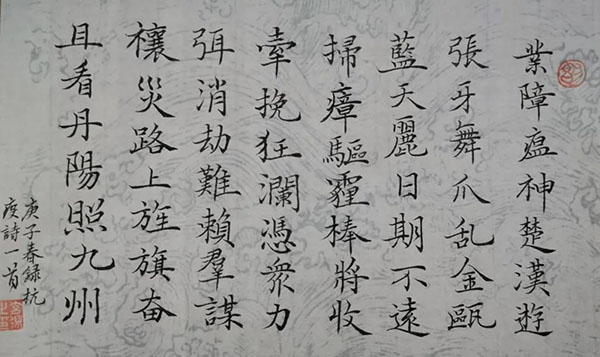 業障瘟神楚漢遊
張牙舞爪乱金甌
藍天麗日期不遠
掃瘴驅霾棒將收
牽挽狂瀾憑衆力
弭消劫難賴羣謀
禳災路上旌旗奋
且看丹陽照九州
庚子春録抗
疫詩一首